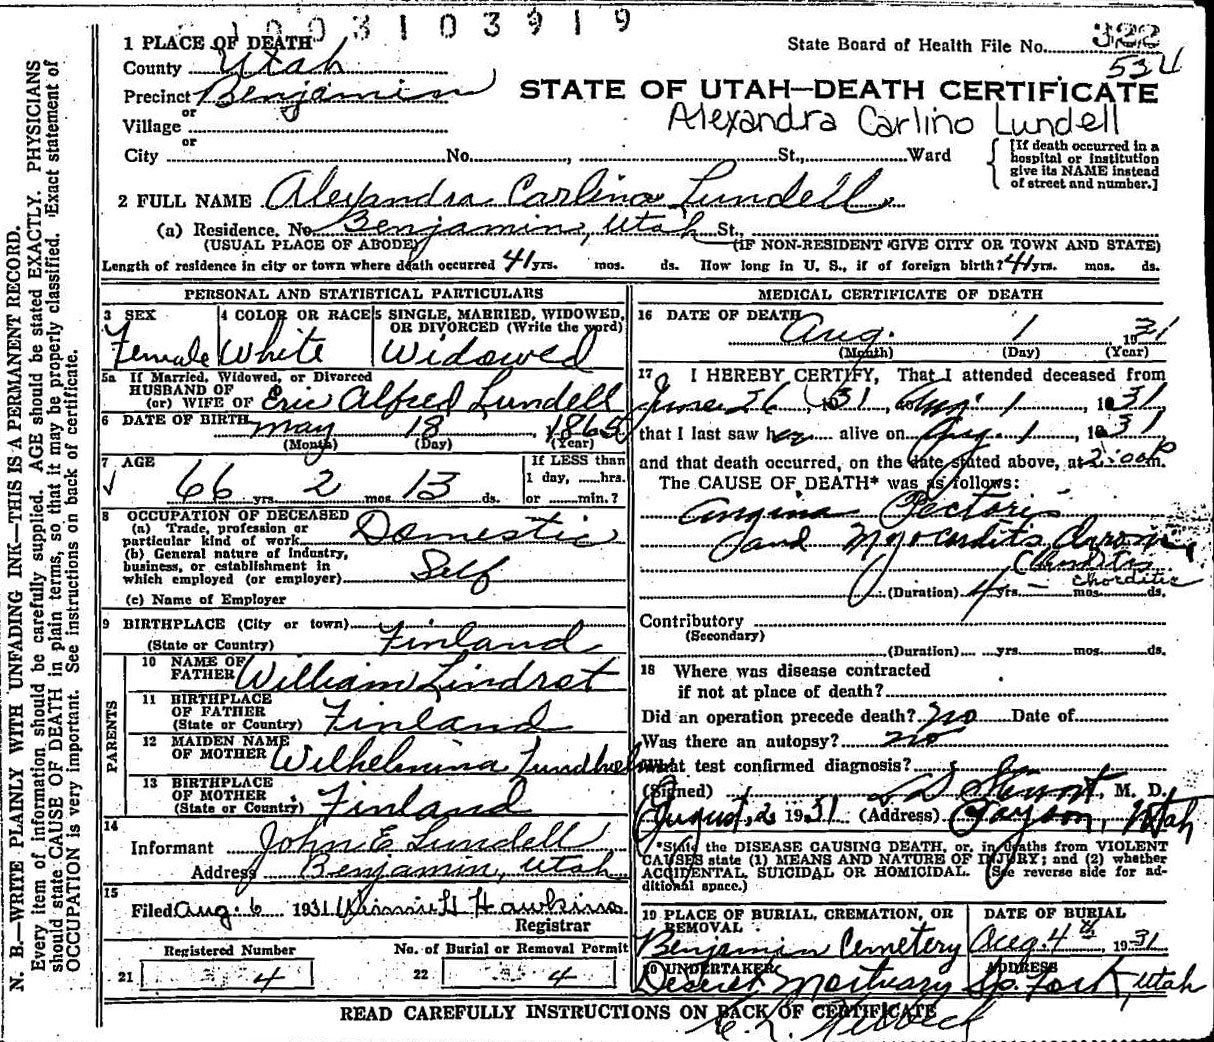 1003103919
1 PLACE OF DEATH
State Board of Health File No. 322
534
County Utah
Precinct Benjamin
or
Village
or
STATE OF UTAH—DEATH CERTIFICATE
Alexandra Carlino Lundell
City No. , St., Ward
[If death occurred in a hospital or institution give its NAME instead of street and number.]
2 FULL NAME Alexandra Carlina Lundell
(a) Residence. No. Benjamin, Utah St.,
(USUAL PLACE OF ABODE) (IF NON-RESIDENT GIVE CITY OR TOWN AND STATE)
Length of residence in city or town where death occurred 41 yrs. mos. ds. How long in U. S., if of foreign birth? 41 yrs. mos. ds.
PERSONAL AND STATISTICAL PARTICULARS
3 SEX
Female
4 COLOR OR RACE
White
5 SINGLE, MARRIED, WIDOWED, OR DIVORCED (Write the word)
Widowed
5a If Married, Widowed, or Divorced
HUSBAND OF
(or) WIFE OF Eric Alfred Lundell
6 DATE OF BIRTH May 18, 1865
(Month) (Day) (Year)
7 AGE
66 yrs. 2 mos. 13 ds.
If LESS than
1 day, hrs.
or min.?
8 OCCUPATION OF DECEASED
(a) Trade, profession or
particular kind of work Domestic
(b) General nature of industry,
business, or establishment in
which employed (or employer) Self
(c) Name of Employer
9 BIRTHPLACE (City or town)
(State or Country) Finland
PARENTS
10 NAME OF
FATHER William Lindrot
11 BIRTHPLACE
OF FATHER
(State or Country) Finland
12 MAIDEN NAME
OF MOTHER Wilhelmina
13 BIRTHPLACE
OF MOTHER
(State or Country) Finland
14
Informant John E Lundell
Address Benjamin, Utah
15
Filed Aug. 6 1931 Minnie H Hawkins
Registrar
Registered Number
21 4
No. of Burial or Removal Permit
22 4
MEDICAL CERTIFICATE OF DEATH
16 DATE OF DEATH
Aug. 1 1931
(Month) (Day) (Year)
17 I HEREBY CERTIFY, That I attended deceased from
June 26, 1931, to Aug. 1, 1931
that I last saw her alive on Aug. 1, 1931
and that death occurred, on the date stated above, at 2:00 P m.
The CAUSE OF DEATH* was as follows:
Angina Pectoris
and Myocardits
chorditis
(Duration) 4 yrs. mos. ds.
Contributory
(Secondary)
(Duration) yrs. mos. ds.
18 Where was disease contracted
if not at place of death?
Did an operation precede death? no Date of
Was there an autopsy? no
What test confirmed diagnosis?
(Signed) L D Stewart, M. D.
August 2 1931 (Address) Payson, Utah
*State the DISEASE CAUSING DEATH, or, in deaths from VIOLENT
CAUSES state (1) MEANS AND NATURE OF INJURY; and (2) whether
ACCIDENTAL, SUICIDAL OR HOMICIDAL. (See reverse side for ad-
ditional space.)
19 PLACE OF BURIAL, CREMATION, OR
REMOVAL
Benjamin Cemetery
DATE OF BURIAL
Aug. 4th, 1931
20 UNDERTAKER
Deseret Mortuary
ADDRESS
Sp. Fork, Utah
READ CAREFULLY INSTRUCTIONS ON BACK OF CERTIFICATE
N. B.—WRITE PLAINLY WITH UNFADING INK—THIS IS A PERMANENT RECORD.
Every item of information should be carefully supplied. AGE should be stated EXACTLY. PHYSICIANS
should state CAUSE OF DEATH in plain terms, so that it may be properly classified. Exact statement of
OCCUPATION is very important. See instructions on back of certificate.